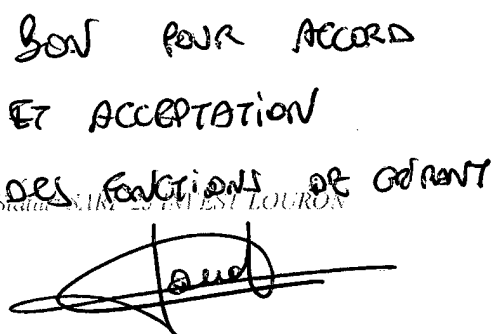 BON POUR ACCORD
ET ACCEPTATION
DES FONCTIONS DE GÉRANT
INVEST LOURON